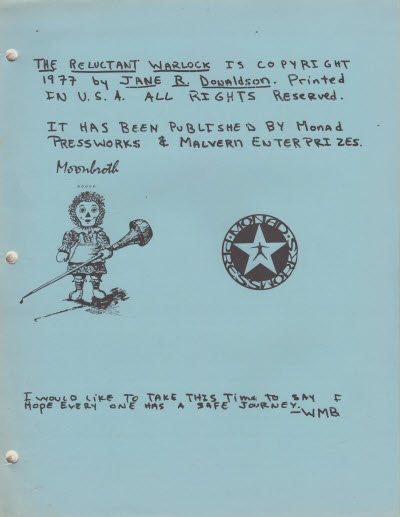 THE RELUCTANT WARLOCK IS COPYRIGHT
1977 by JANE R. DONALDSON. Printed
IN U.S.A. ALL RIGHTS Reserved.
IT HAS BEEN PUBLISHED BY MONAD
PRESSWORKS & MALVERN ENTERPRIZES.
Moonbroth
MONAD
PRESSWORKS
I WOULD LIKE TO TAKE THIS TIME TO SAY I
HOPE EVERY ONE HAS A SAFE JOURNEY.
—WMB